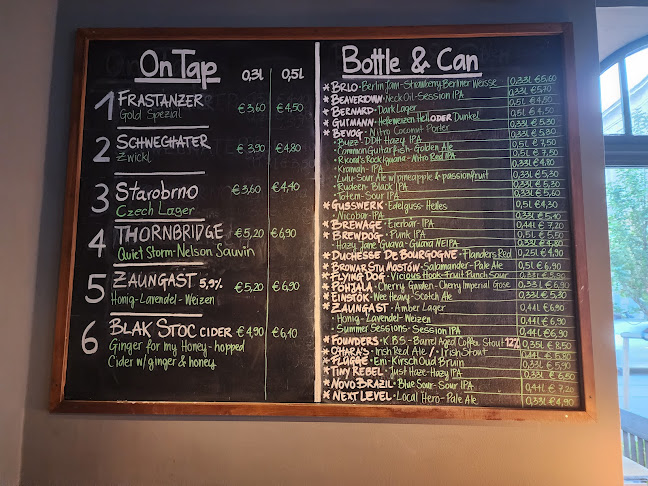 On Tap 0,3l 0,5l
1 FRASTANZER €3,60 €4,50
Gold Spezial
2 SCHWECHATER €3,90 €4,80
Zwickl
3 Starobrno €3,60 €4,40
Czech Lager
4 THORNBRIDGE €5,20 €6,90
Quiet Storm-Nelson Sauvin
5 ZAUNGAST 5,9% €5,20 €6,90
Honig-Lavendel-Weizen
6 BLAK STOC CIDER €4,90 €6,40
Ginger for my Honey-hopped
Cider w/ginger & honey
Bottle & Can
* BRLO-Berlin Jam-Strawberry Berliner Weisse 0,33l €5,60
* BEAVERTOWN-Neck Oil-Session IPA 0,33l €5,70
* BERNARD-Dark Lager 0,5l €4,50
* GUTMANN-Hefeweizen Hell ODER Dunkel 0,5l €4,50
* BEVOG-Nitro Coconut Porter 0,33l €5,30
Buzz-DDH Hazy IPA 0,33l €5,80
Common Guitarfish-Golden Ale 0,5l €7,50
Ricord's Rock Iguana-Nitro Red IPA 0,5l €7,80
Kramah-IPA 0,33l €4,80
Lulu-Sour Ale w/pineapple & passionfruit 0,33l €5,30
Rudeen-Black IPA 0,33l €5,30
Totem-Sour IPA 0,33l €5,60
* GUSSWERK-Edelguss-Helles 0,5l €4,30
Nicobar-IPA 0,33l €5,10
* BREWAGE-Eierbär-IPA 0,44l €7,20
* BREWDOG-Punk IPA 0,5l €5,50
Hazy Jane Guava-Guava NEIPA 0,33l €4,80
* DUCHESSE DE BOURGOGNE-Flanders Red 0,25l €4,90
* BROWAR STU MOSTÓW-Salamander-Pale Ale 0,5l €6,90
* FLYING DOG-Vicious Hook-Fruit Punch Sour 0,33l €5,90
* PÕHJALA-Cherry Garden-Cherry Imperial Gose 0,33l €6,90
* EINSTÖK-Wee Heavy-Scotch Ale 0,33l €5,30
* ZAUNGAST-Amber Lager 0,44l €6,90
Honig-Lavendel-Weizen 0,44l €6,90
Summer Sessions-Session IPA 0,44l €6,90
* FOUNDERS-K.B.S.-Barrel Aged Coffee Stout 12% 0,35l €8,50
* O'HARA'S-Irish Red Ale/-Irish Stout 0,44l €5,80
* FLÜGGE-Emi-Kirsch Oud Bruin 0,33l €5,90
* TINY REBEL-Just Haze-Hazy IPA 0,33l €6,50
* NOVO BRAZIL-Blue Sour-Sour IPA 0,44l €7,20
* NEXT LEVEL-Local Hero-Pale Ale 0,33l €4,90